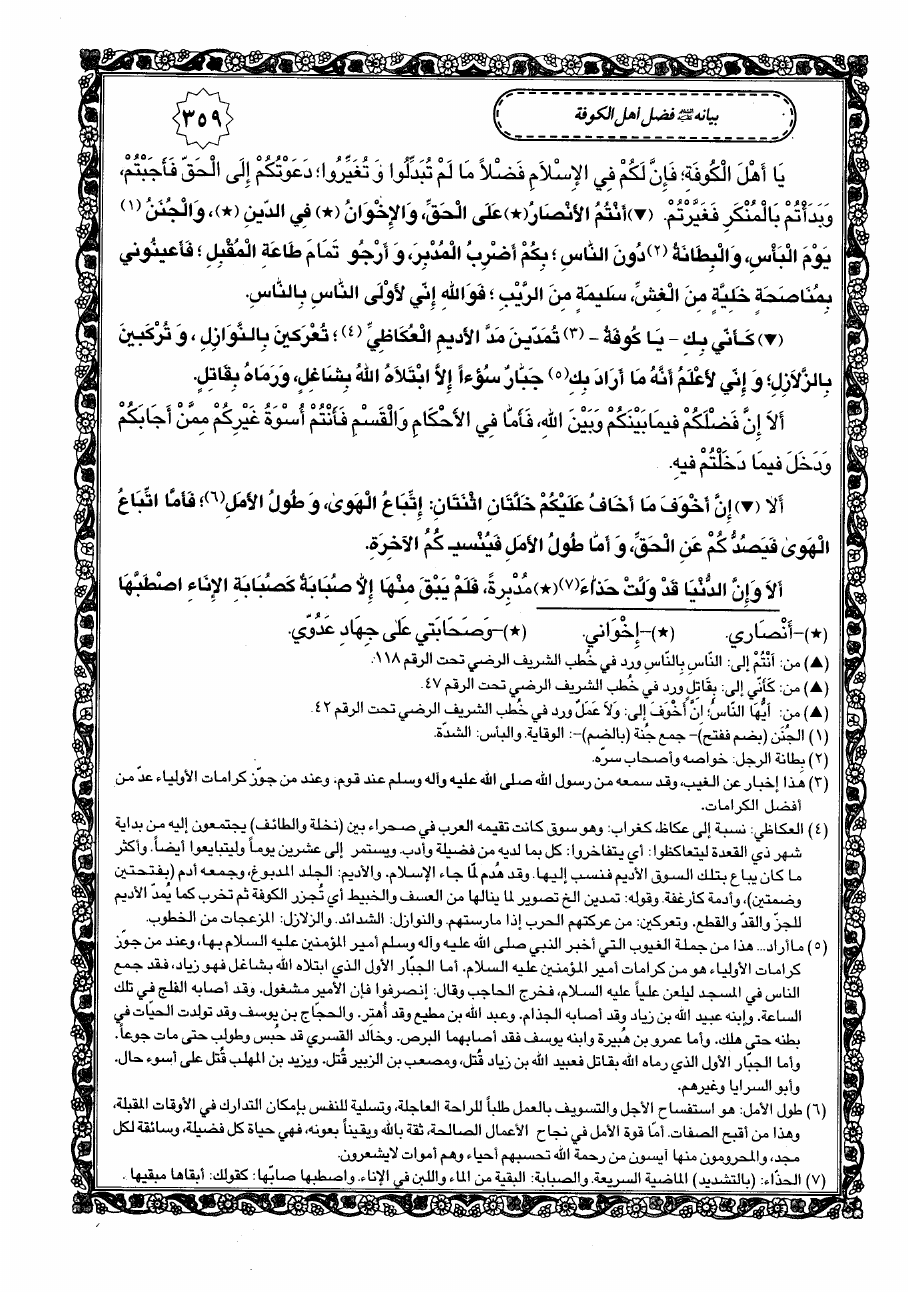 بيانه عليه السلام فضل أهل الكوفة
٣٥٩
يَا أَهْلَ الْكُوفَةِ؛ فَإِنَّ لَكُمْ فِي الإِسْلاَمِ فَضْلاً مَا لَمْ تُبَدِّلُوا وَ تُغَيِّرُوا؛ دَعَوْتُكُمْ إِلَى الْحَقِّ فَأَجَبْتُمْ،
وَبَدَأْتُمْ بِالْمُنْكَرِ فَغَيَّرْتُمْ. (▼) أَنْتُمُ الأَنْصَارُ(★) عَلَى الْحَقِّ، وَالإِخْوَانُ (★) فِي الدّينِ (★)، وَالْجُنَنُ (١)
يَوْمَ الْبَأْسِ، وَالْبِطَانَةُ (٢) دُونَ النَّاسِ؛ بِكُمْ أَضْرِبُ الْمُدْبِرَ، وَ أَرْجُو تَمَامَ طَاعَةِ الْمُقْبِلِ؛ فَأَعينُوني
بِمُنَاصَحَةٍ خَلِيَّةٍ مِنَ الْغِشِّ، سَليمَةٍ مِنَ الرَّيْبِ؛ فَوَاللهِ إِنّي لأَوْلَى النَّاسِ بِالنَّاسِ.
(▼) كَأَنّي بِكِ - يَا كُوفَةُ - (٣) تُمَدّينَ مَدَّ الأَديمِ الْعُكَاظِيِّ (٤)؛ تُعْرَكينَ بِالنَّوَازِلِ، وَ تُرْكَبينَ
بِالزَّلاَزِلِ؛ وَ إِنّي لأَعْلَمُ أَنَّهُ مَا أَرَادَ بِكِ (٥) جَبَّارٌ سُوْءاً إِلاَّ ابْتَلاَهُ اللهُ بِشَاغِلٍ، وَرَمَاهُ بِقَاتِلٍ.
أَلاَ إِنَّ فَضْلَكُمْ فيمَابَيْنَكُمْ وَبَيْنَ اللهِ، فَأَمَّا فِي الأَحْكَامِ وَالْقَسْمِ فَأَنْتُمْ أُسْوَةُ غَيْرِكُمْ مِمَّنْ أَجَابَكُمْ
وَدَخَلَ فيمَا دَخَلْتُمْ فيهِ.
أَلاَ (▼) إِنَّ أَخْوَفَ مَا أَخَافُ عَلَيْكُمْ خَلَّتَانِ اثْنَتَانِ: إِتِّبَاعُ الْهَوىٰ، وَ طُولُ الأَمَلِ (٦)؛ فَأَمَّا اتِّبَاعُ
الْهَوىٰ فَيَصُدُّكُمْ عَنِ الْحَقِّ، وَ أَمَّا طُولُ الأَمَلِ فَيُنْسيكُمُ الآخِرَةِ.
أَلاَ وَإِنَّ الدُّنْيَا قَدْ وَلَّتْ حَذَّاءَ (٧) (★) مُدْبِرَةً، فَلَمْ يَبْقَ مِنْهَا إِلاَّ صُبَابَةٌ كَصُبَابَةِ الإِنَاءِ اصْطَبَّهَا
(★)-أَنْصَاري. (★)-إِخْوَاني. (★)-وَصَحَابَتي عَلىٰ جِهَادِ عَدُوّي.
(▲) من: أَنْتُمْ إلى: النَّاسِ بِالنَّاسِ ورد في خُطب الشريف الرضي تحت الرقم ١١٨.
(▲) من: كَأَنّي إلى: بِقَاتِلٍ ورد في خُطب الشريف الرضي تحت الرقم ٤٧.
(▲) من: أَيُّهَا النَّاسُ؛ إِنَّ أَخْوَفَ إلى: وَلاَ عَمَلَ ورد في خُطب الشريف الرضي تحت الرقم ٤٢.
(١) الجُنَن (بضم ففتح)- جمع جُنة (بالضم)-: الوقاية. والبأس: الشدّة.
(٢) بِطانة الرجل: خواصه وأصحاب سرّه.
(٣) هذا إخبار عن الغيب، وقد سمعه من رسول الله صلى الله عليه وآله وسلم عند قوم، وعند من جوّز كرامات الأولياء عدّ من
أفضل الكرامات.
(٤) العكاظي: نسبة إلى عكاظ كغراب: وهو سوق كانت تقيمه العرب في صحراء بين (نخلة والطائف) يجتمعون إليه من بداية
شهر ذي القعدة ليتعاكظوا: أي يتفاخروا: كل بما لديه من فضيلة وأدب. ويستمر إلى عشرين يوماً وليتبايعوا أيضاً. وأكثر
ما كان يباع بتلك السوق الأديم فنسب إليها. وقد هُدم لمّا جاء الإسلام. والأديم: الجلد المدبوغ، وجمعه أدم (بفتحتين
وضمتين)، وأدمة كأرغفة. وقوله: تمدين الخ تصوير لما ينالها من العسف والخبيط أي تُجزر الكوفة ثم تخرب كما يُمدّ الأديم
للجزّ والقدّ والقطع. وتعركين: من عركتهم الحرب إذا مارستهم. والنوازل: الشدائد. والزلازل: المزعجات من الخطوب.
(٥) ماأراد... هذا من جملة الغيوب التي أخبر النبي صلى الله عليه وآله وسلم أمير المؤمنين عليه السلام بها، وعند من جوّز
كرامات الأولياء هو من كرامات أمير المؤمنين عليه السلام. أما الجبّار الأول الذي ابتلاه الله بشاغل فهو زياد، فقد جمع
الناس في المسجد ليلعن علياً عليه السلام، فخرج الحاجب وقال: إنصرفوا فإن الأمير مشغول. وقد أصابه الفلج في تلك
الساعة. وإبنه عبيد الله بن زياد وقد أصابه الجذام. وعبد الله بن مطيع وقد أُهتِر. والحجّاج بن يوسف وقد تولدت الحيّات في
بطنه حتى هلك. وأما عمرو بن هُبيرة وابنه يوسف فقد أصابهما البرص. وخالد القسري قد حُبس وطولب حتى مات جوعاً.
وأما الجبّار الأول الذي رماه الله بقاتل فعبيد الله بن زياد قُتل، ومصعب بن الزبير قُتل. ويزيد بن المهلب قُتل على أسوء حال.
وأبو السرايا وغيرهم.
(٦) طول الأمل: هو استفساح الأجل والتسويف بالعمل طلباً للراحة العاجلة، وتسلية للنفس بإمكان التدارك في الأوقات المقبلة،
وهذا من أقبح الصفات. أمّا قوة الأمل في نجاح الأعمال الصالحة، ثقة بالله ويقيناً بعونه، فهي حياة كل فضيلة، وسائقة لكل
مجد، والمحرومون منها آيسون من رحمة الله تحسبهم أحياء وهم أموات لايشعرون.
(٧) الحذّاء: (بالتشديد) الماضية السريعة. والصبابة: البقية من الماء واللبن في الإناء. واصطبها صابّها: كقولك: أبقاها مبقيها.